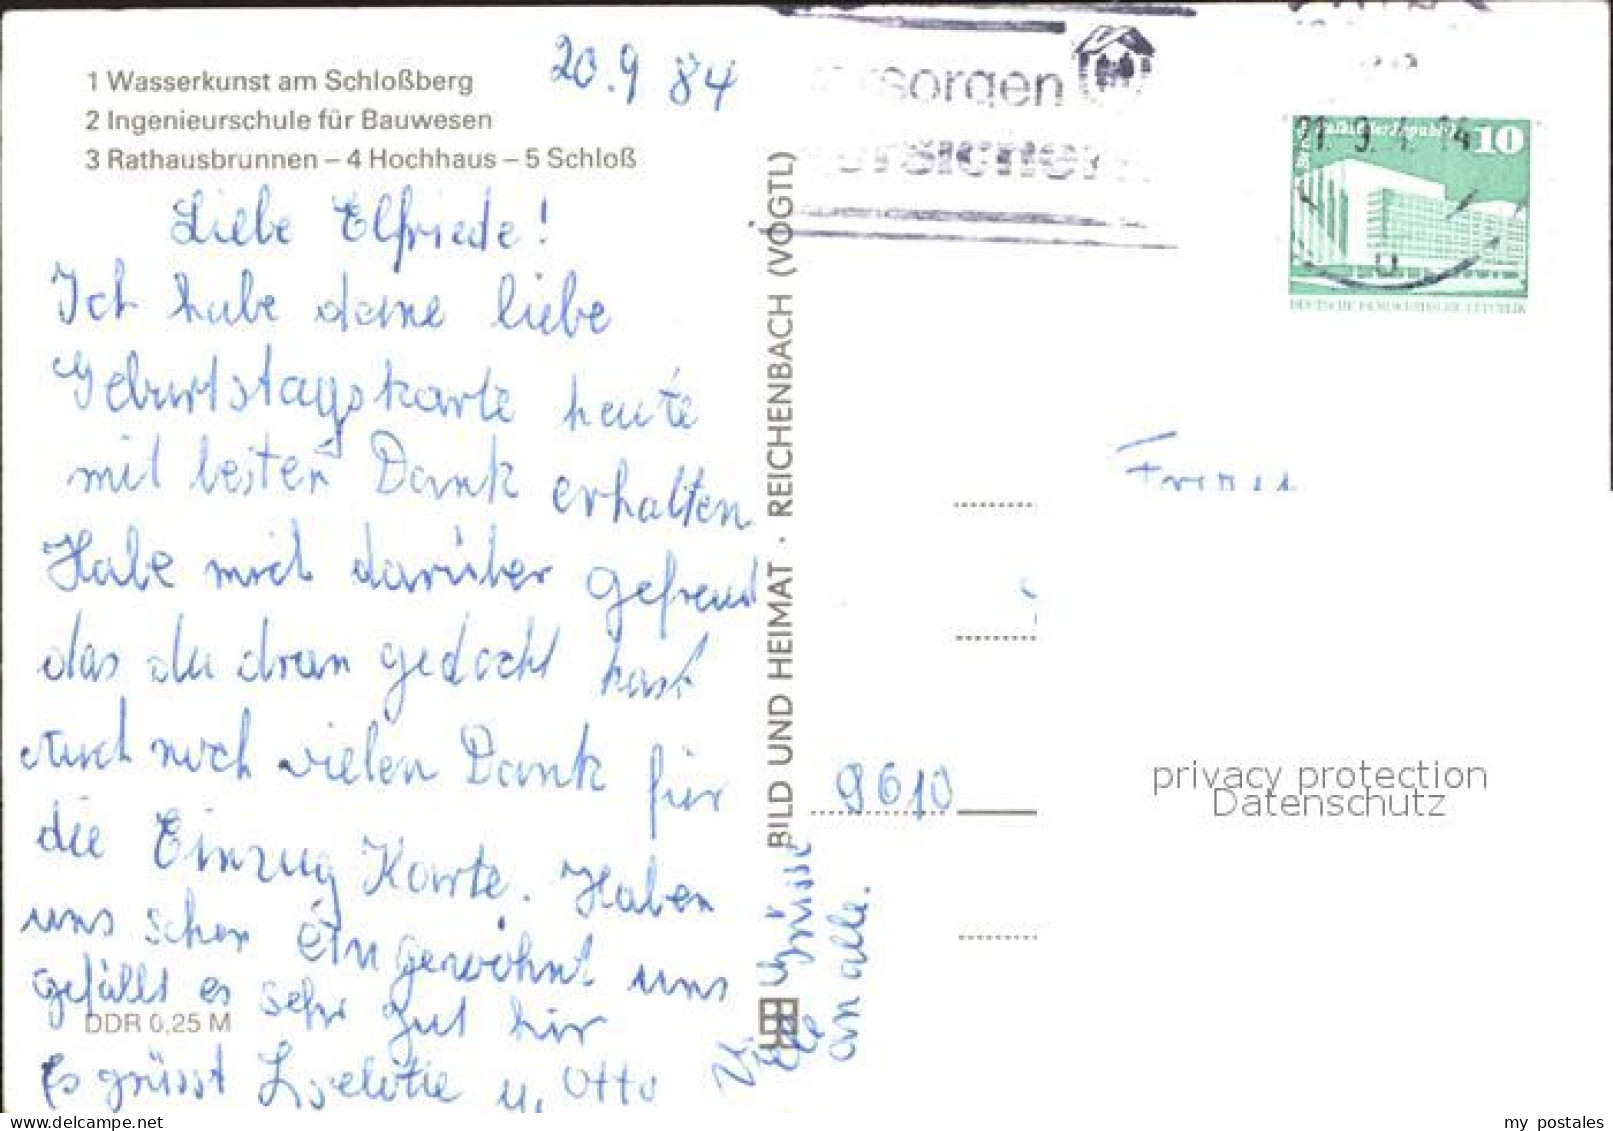 1 Wasserkunst am Schloßberg
2 Ingenieurschule für Bauwesen
3 Rathausbrunnen – 4 Hochhaus – 5 Schloß
20.9 84
Liebe Elfriede!
Ich habe deine liebe
Geburtstagskarte heute
mit besten Dank erhalten
Habe mich darüber gefreud
das du dran gedacht hast
Auch noch vielen Dank für
die Einzug Karte. Haben
uns schon eingewöhnt uns
gefällt es sehr gut hir
DDR 0,25 M
Es grüsst Liselotte u. Otto
Viele Grüsse
an alle.
BILD UND HEIMAT · REICHENBACH (VOGTL)
10
DEUTSCHE DEMOKRATISCHE REPUBLIK
9610
privacy protection
Datenschutz
www.delcampe.net
my_postales